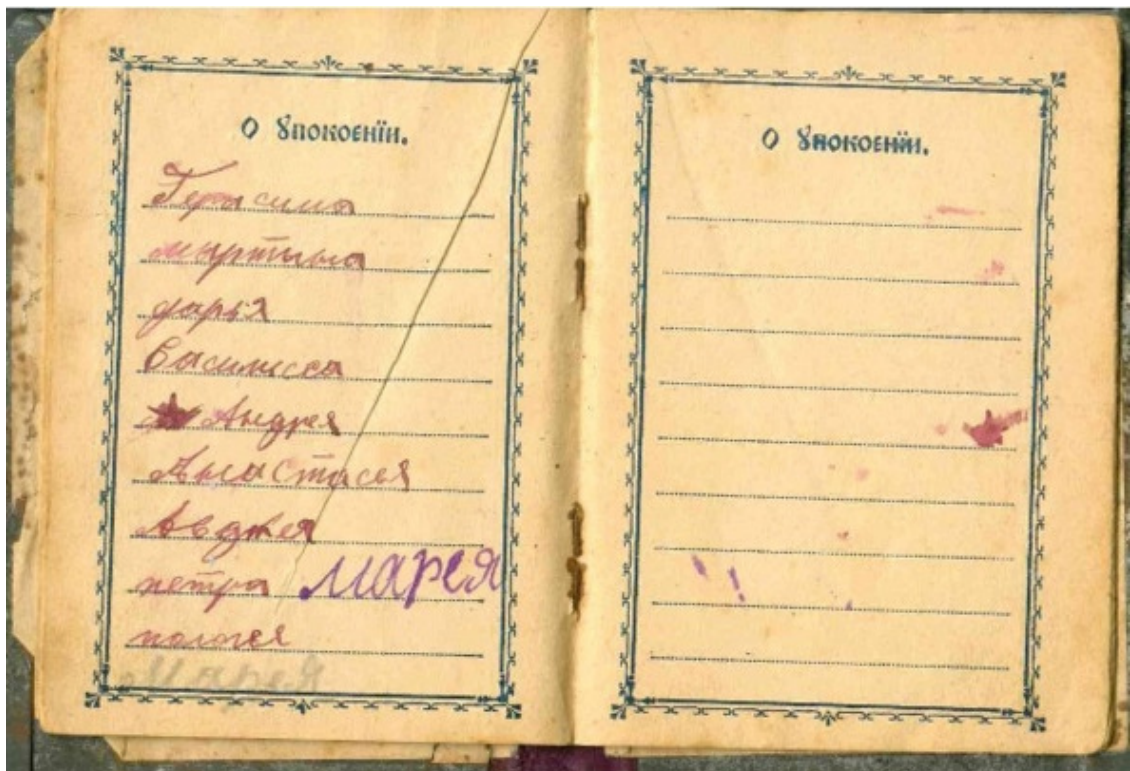 О Ѹпокоенїи.
Герасима
мартына
дарья
Василисса
Андрея
Анастасья
Авдкея
петра марея
Марея
О Ѹпокоенїи.